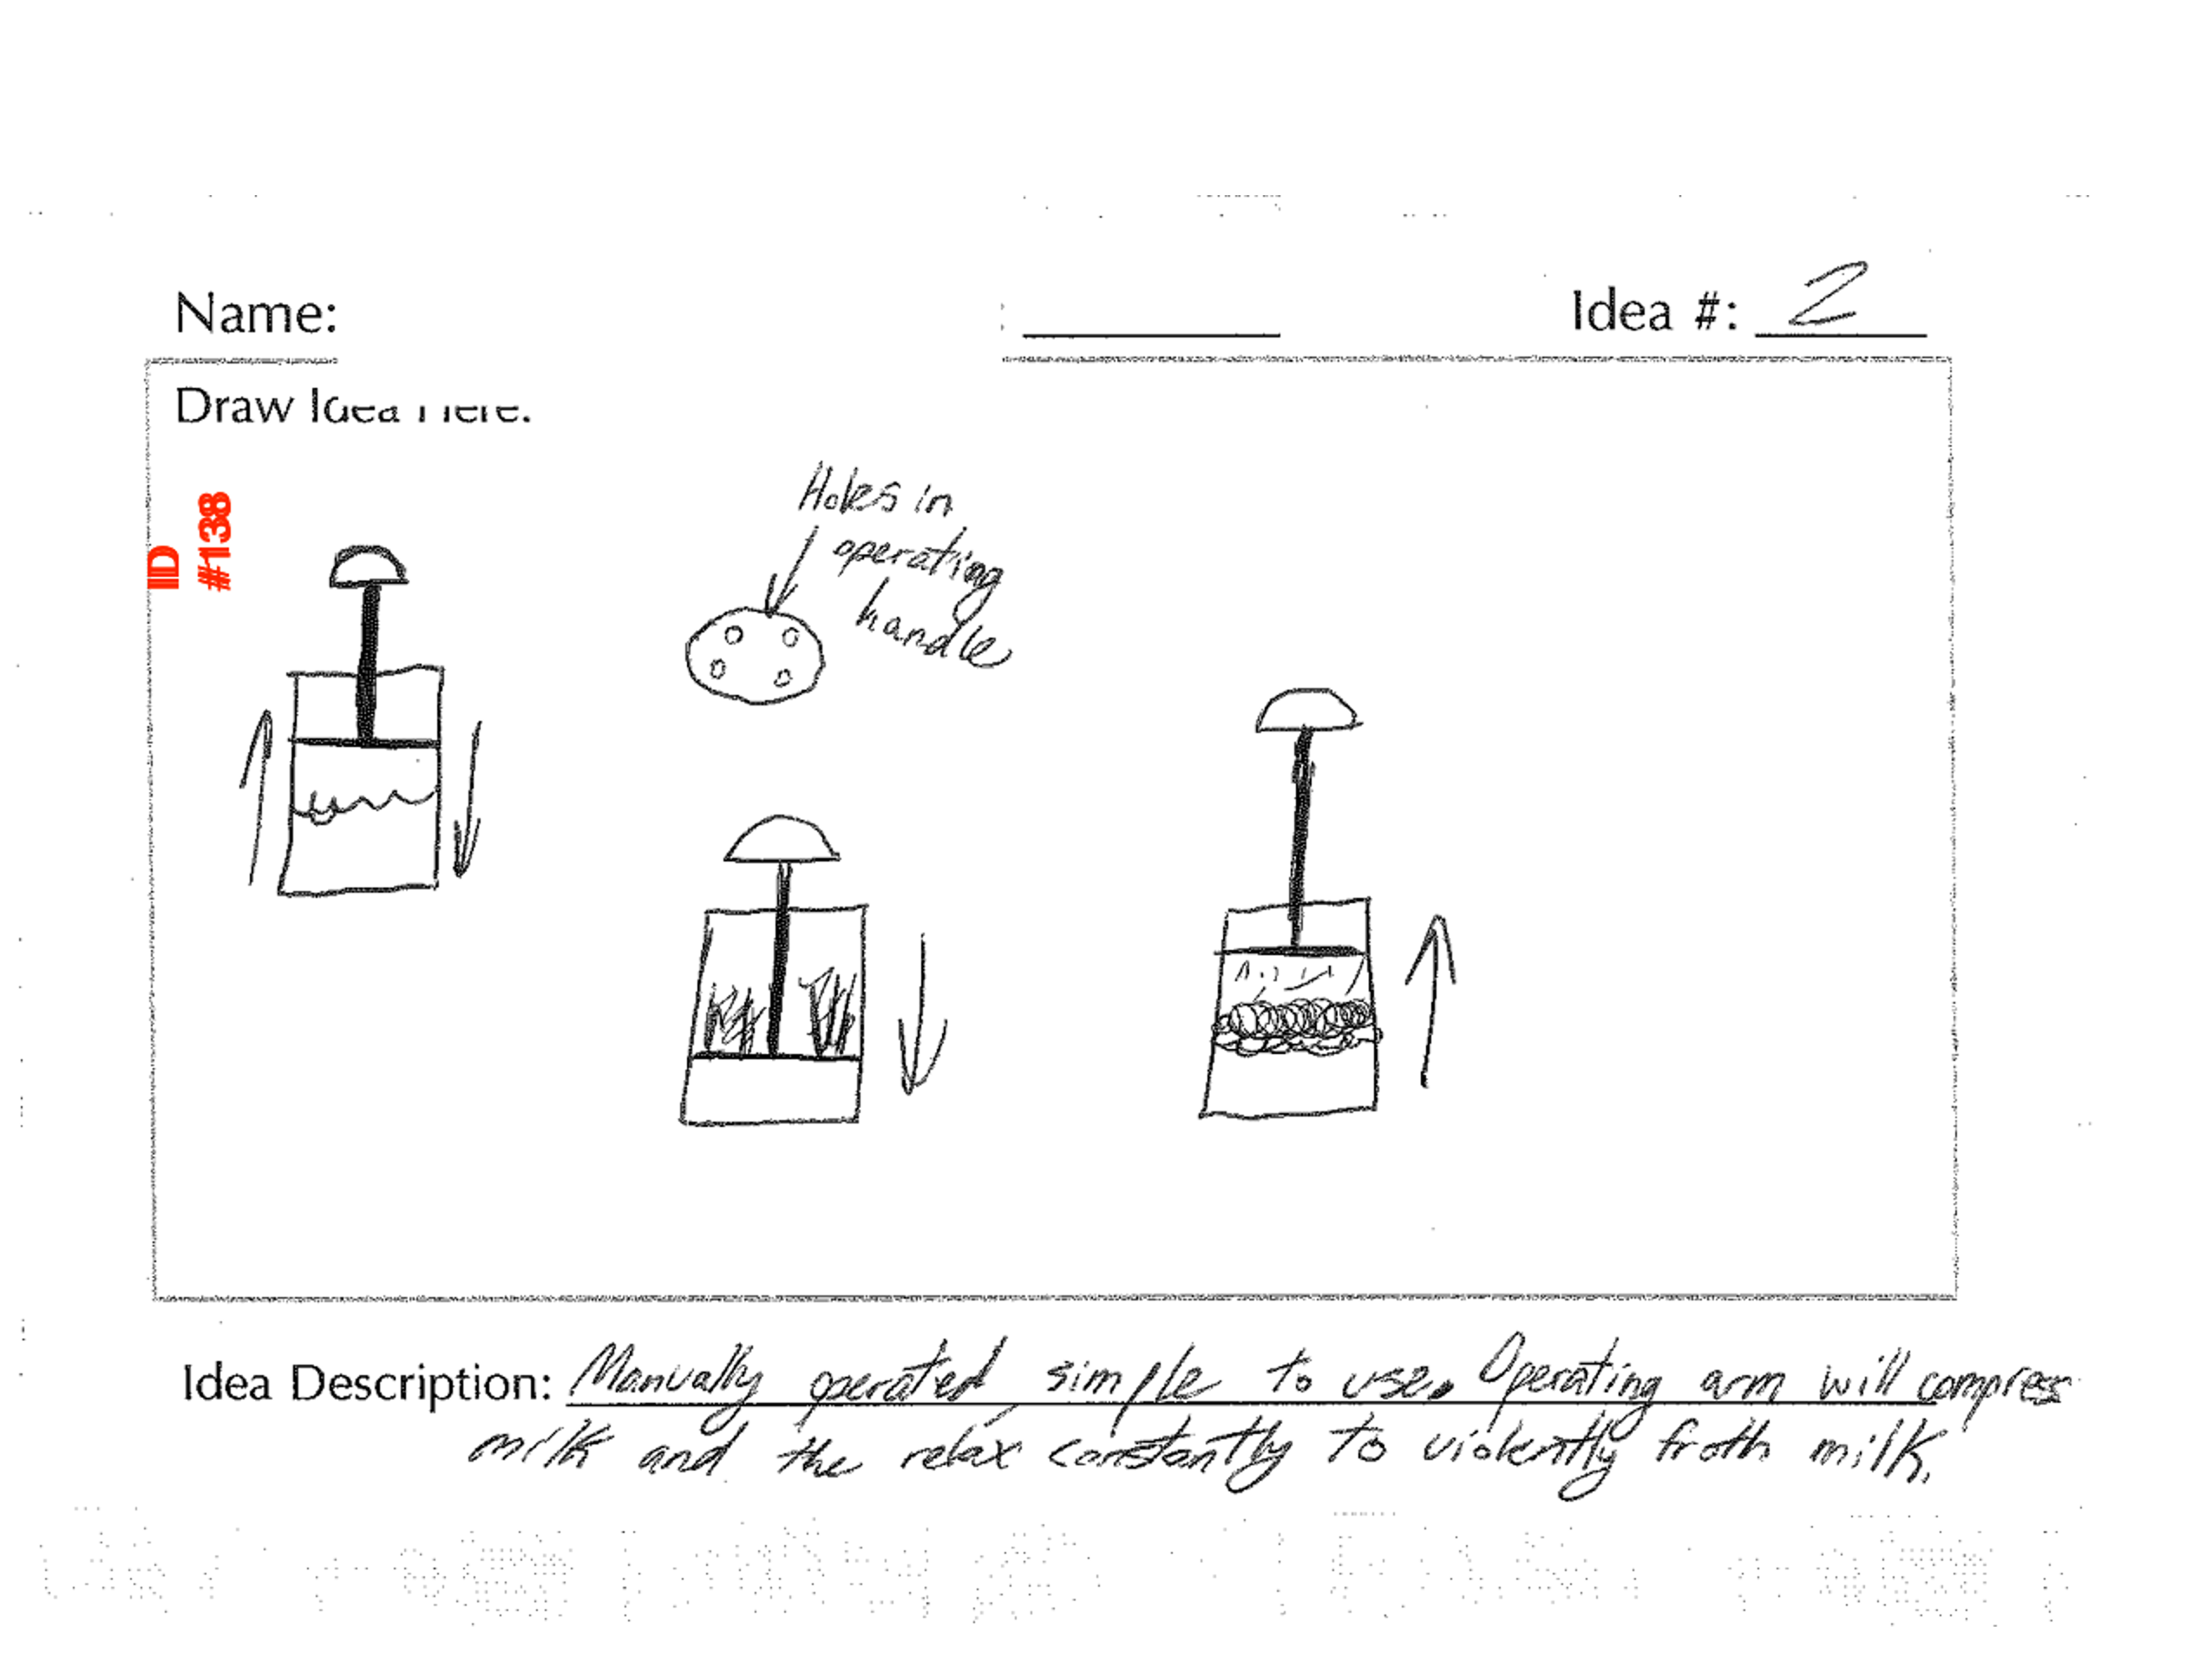 Name:
Idea #: 2
Draw Idea Here.
ID
#138
Holes in
operating
handle
Idea Description: Manually operated, simple to use. Operating arm will compress
milk and the relax constantly to violently froth milk.